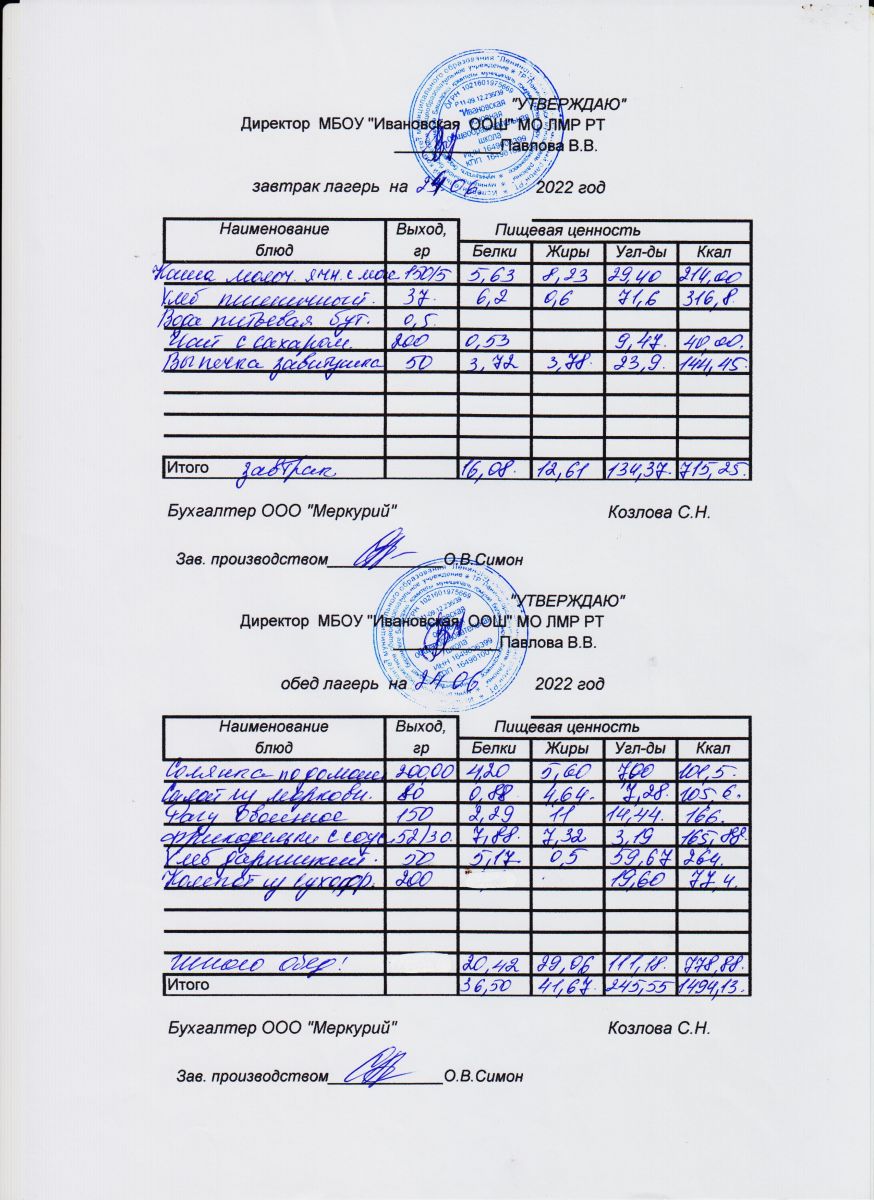 "УТВЕРЖДАЮ"
Директор МБОУ "Ивановская ООШ" МО ЛМР РТ
Павлова В.В.
завтрак лагерь на 24 06 2022 год
Наименование блюд Выход, гр Пищевая ценность
Белки Жиры Угл-ды Ккал
Каша молоч. ячн. с мас 150/5 5,63 8,23 29,40 214,00
Хлеб пшеничный. 37. 6,2 0,6 71,6 316,8.
Вода питьевая бут. 0,5.
Чай с сахаром. 200 0,53 9,47. 40,00.
Выпечка завитушка 50 3,72 3,78. 23,9. 144,45.
Итого завтрак 16,08. 12,61 134,37. 715,25.
Бухгалтер ООО "Меркурий" Козлова С.Н.
Зав. производством О.В.Симон
"УТВЕРЖДАЮ"
Директор МБОУ "Ивановская ООШ" МО ЛМР РТ
Павлова В.В.
обед лагерь на 24 06 2022 год
Наименование блюд Выход, гр Пищевая ценность
Белки Жиры Угл-ды Ккал
Солянка по домаш 4,20 5,60 7,00 101,5.
Салат из моркови. 80 0,88. 4,64. 7,28. 105,6.
Рагу овощное 150 2,29 11 14,44. 166.
Фрикадельки с соус 52/30. 7,88. 7,32 3,19 165,88.
Хлеб дарницкий. 50 5,17. 0,5 59,67 264.
Компот из сухофр. 200 19,60 77,4.
Итого обед! 20,42 29,06 111,18. 778,88.
Итого 36,50 41,67. 245,55 1494,13.
Бухгалтер ООО "Меркурий" Козлова С.Н.
Зав. производством О.В.Симон